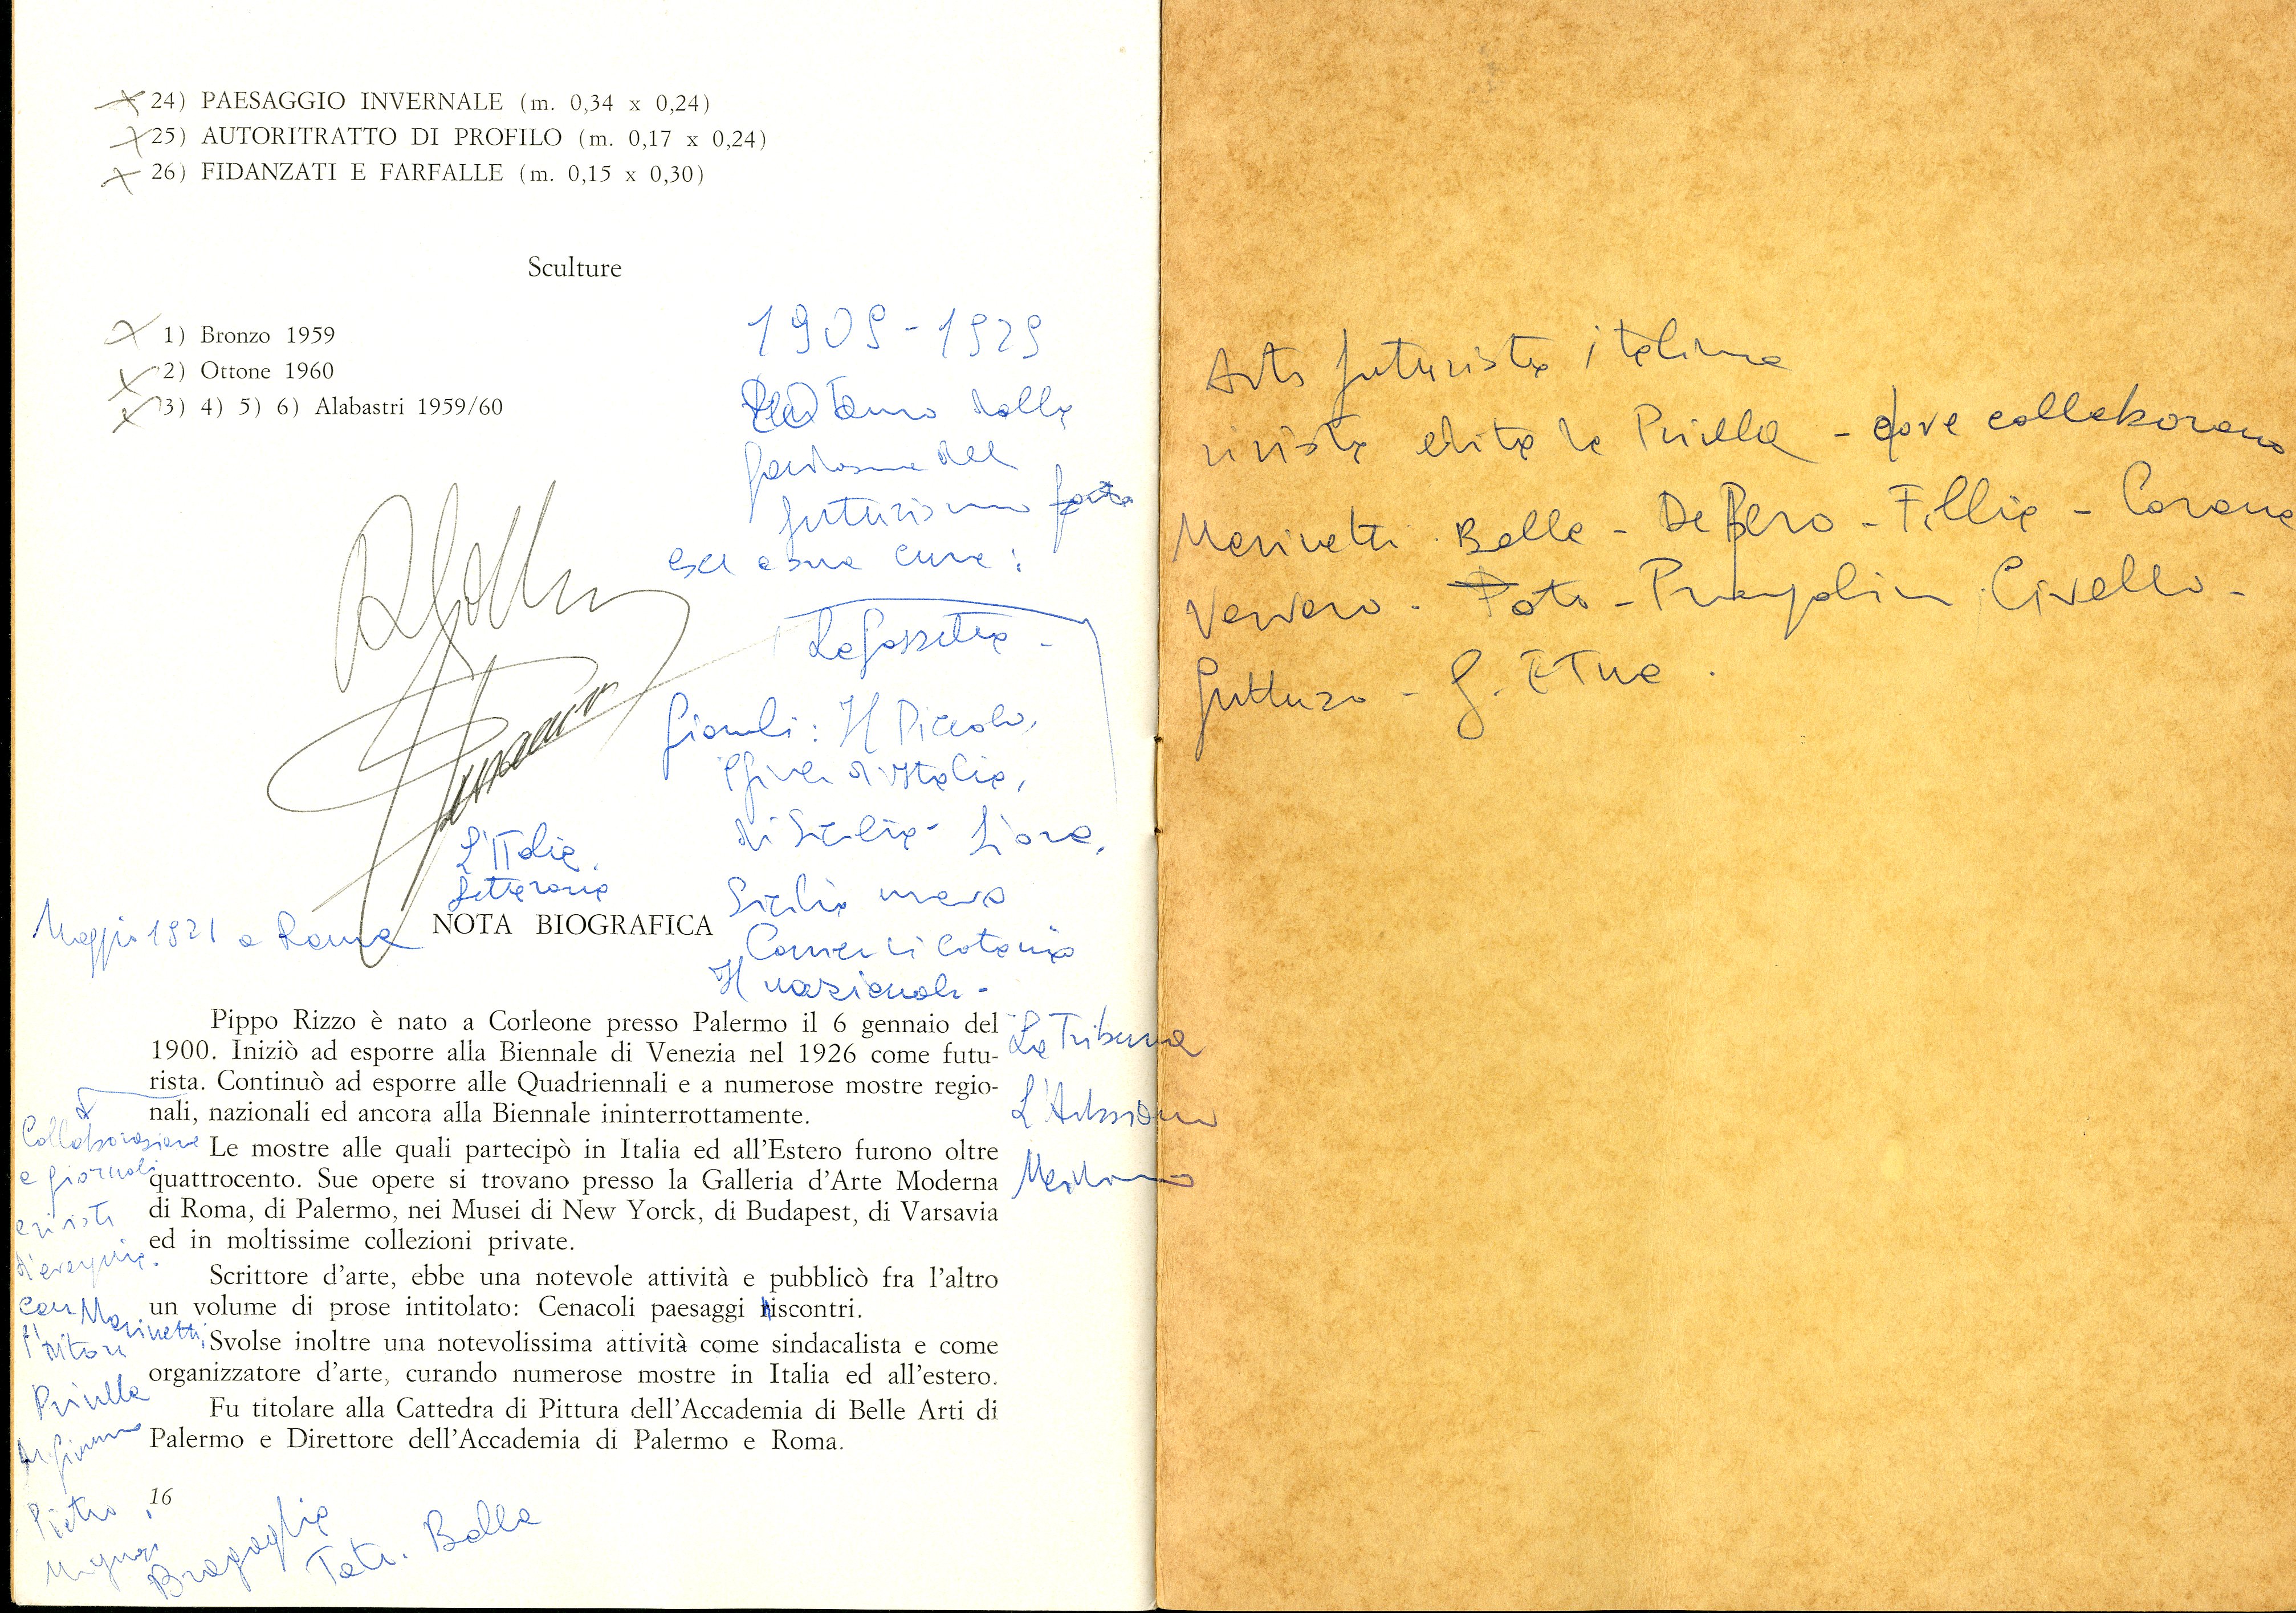 24) PAESAGGIO INVERNALE (m. 0,34 x 0,24)
25) AUTORITRATTO DI PROFILO (m. 0,17 x 0,24)
26) FIDANZATI E FARFALLE (m. 0,15 x 0,30)
Sculture
1) Bronzo 1959
2) Ottone 1960
3) 4) 5) 6) Alabastri 1959/60
1909-1929
dalla
del
futurismo
a sua cura:
La Gazzetta -
Giornali: Il Piccolo,
d'Italia,
di Sicilia - L'ora,
Sicilia nuova
Corriere di Catania
Il nazionale -
L'Italia
Letteraria
Maggio 1921 a Roma
NOTA BIOGRAFICA
Pippo Rizzo è nato a Corleone presso Palermo il 6 gennaio del
1900. Iniziò ad esporre alla Biennale di Venezia nel 1926 come futu-
rista. Continuò ad esporre alle Quadriennali e a numerose mostre regio-
nali, nazionali ed ancora alla Biennale ininterrottamente.
Le mostre alle quali partecipò in Italia ed all'Estero furono oltre
quattrocento. Sue opere si trovano presso la Galleria d'Arte Moderna
di Roma, di Palermo, nei Musei di New Yorck, di Budapest, di Varsavia
ed in moltissime collezioni private.
Scrittore d'arte, ebbe una notevole attività e pubblicò fra l'altro
un volume di prose intitolato: Cenacoli paesaggi riscontri.
Svolse inoltre una notevolissima attività come sindacalista e come
organizzatore d'arte, curando numerose mostre in Italia ed all'estero.
Fu titolare alla Cattedra di Pittura dell'Accademia di Belle Arti di
Palermo e Direttore dell'Accademia di Palermo e Roma.
La Tribuna
L'
Meridiano
Collaborazione
a giornali
e riviste
con Marinetti,
Priulla
Pietro
Mignosi
Bragaglia
Balla
16
Arte futurista italiana
rivista edita da Priulla - dove collaborano
Marinetti - Balla - Depero - Fillia - Corona
Varvaro - Tato - Prampolini - Civello -
Guttuso - G. Etna.